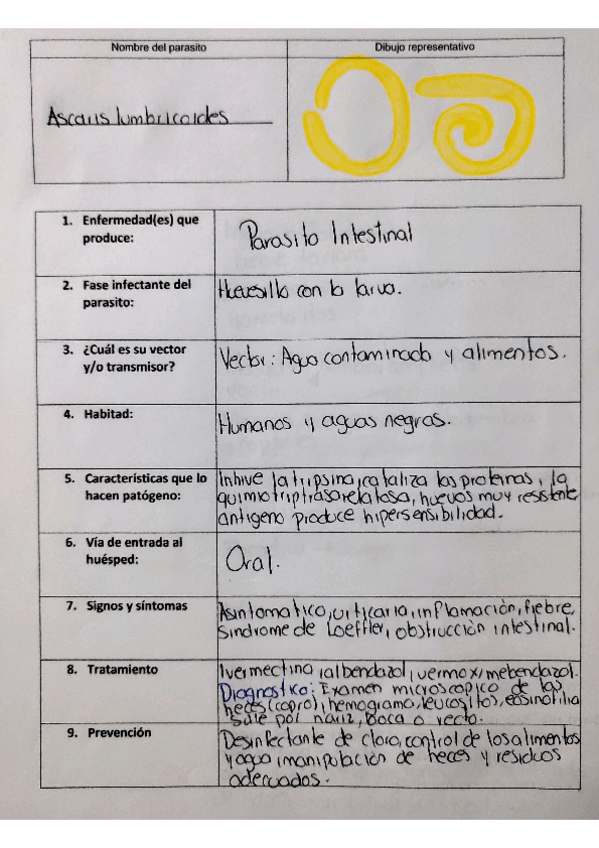 Nombre del parasito
Dibujo representativo
Ascaris lumbricoides
1. Enfermedad(es) que
produce:
Parasito Intestinal
2. Fase infectante del
parasito:
con la larva.
3. ¿Cuál es su vector
y/o transmisor?
Vector: Agua contaminada y alimentos.
4. Habitad:
Humanos y aguas negras.
5. Características que lo
hacen patógeno:
Inhive la tripsina, cataliza las proteinas, la
huevos muy resistente
antigeno produce hipersensibilidad.
6. Vía de entrada al
huésped:
Oral.
7. Signos y síntomas
Asintomatico, urticaria, inflamación, fiebre,
sindrome de Loeffler, obstrucción intestinal.
8. Tratamiento
Ivermectina, albendazol, vermox/mebendazol.
Diagnostico: Examen microscopico de las
heces (copro), hemograma, leucositos, eosinofilia
Sale por nariz, boca o recto.
9. Prevención
Desinfectante de cloro, control de los alimentos
y agua, manipulación de heces y residuos
adecuados.